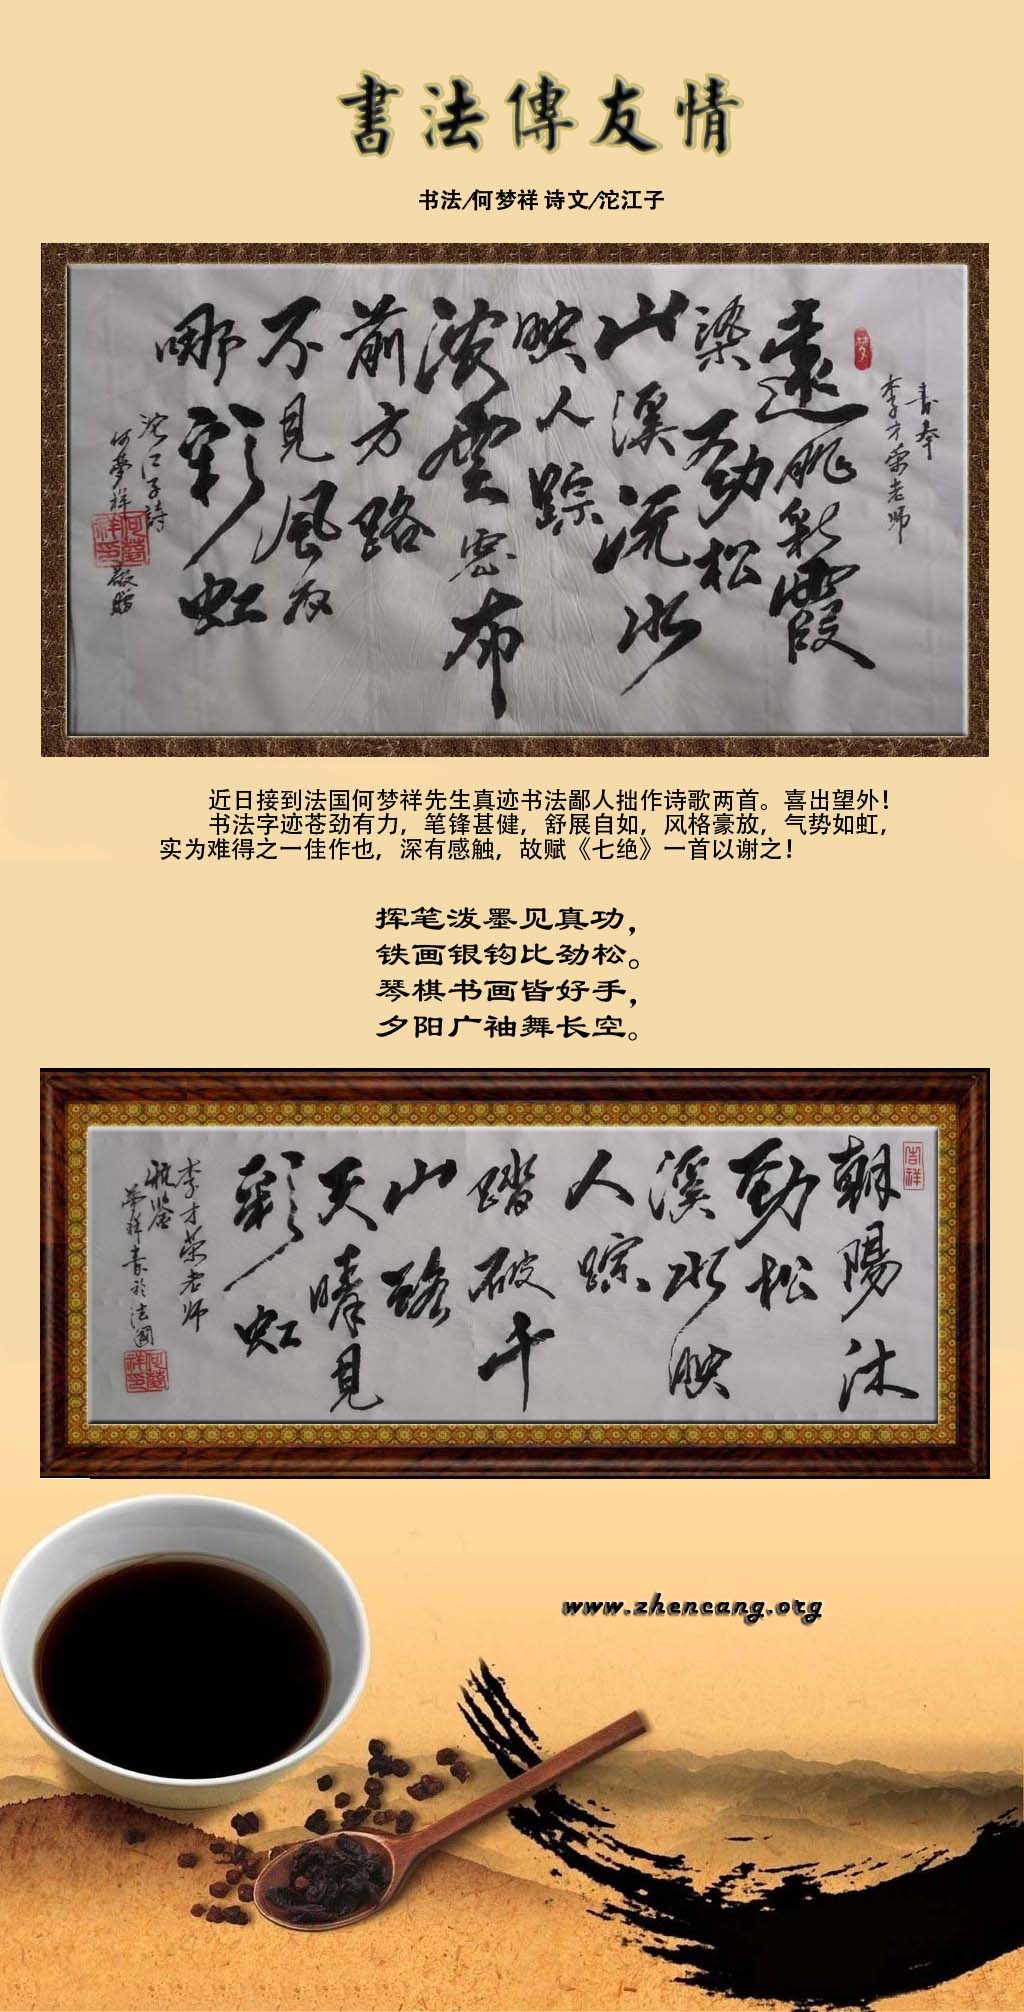 書法傳友情
书法/何梦祥 诗文/沱江子
書奉
李才荣老师
遠眺彩霞
染劲松
山溪流水
映人踪
浓雲密布
前方路
不見風
哪彩虹
沱江子詩
何夢祥敬贈
何夢祥印
近日接到法国何梦祥先生真迹书法鄙人拙作诗歌两首。喜出望外！
书法字迹苍劲有力，笔锋甚健，舒展自如，风格豪放，气势如虹，
实为难得之一佳作也，深有感触，故赋《七绝》一首以谢之！
挥笔泼墨见真功，
铁画银钩比劲松。
琴棋书画皆好手，
夕阳广袖舞长空。
吉祥
朝陽沐
劲松
溪水映
人踪
踏破千
山路
天晴見
彩虹
李才荣老师
雅鉴
夢祥書於法國
何夢祥印
www.zhencang.org